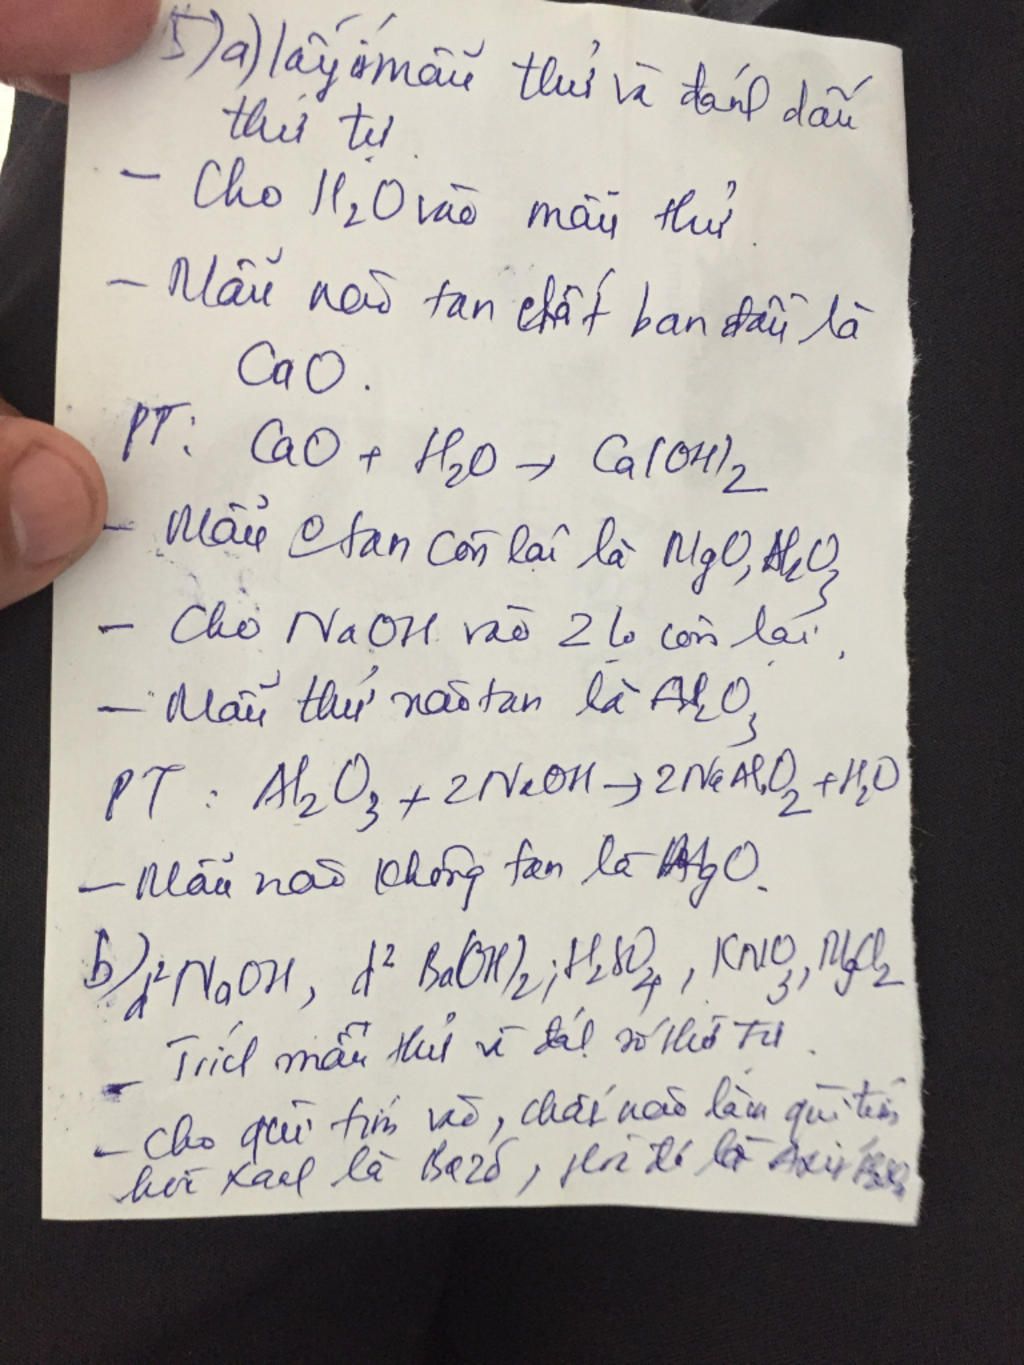 5)a) lấy mẫu thử và đánh dấu
thứ tự
- Cho H₂O vào mẫu thử.
- Mẫu nào tan chất ban đầu là
CaO.
PT: CaO + H₂O → Ca(OH)₂
- Mẫu tan còn lại là MgO, Al₂O₃
- Cho NaOH vào 2 lọ còn lại.
- Mẫu thử nào tan là Al₂O₃
PT: Al₂O₃ + 2NaOH → 2NaAlO₂ + H₂O
- Mẫu nào không tan là MgO.
b) d² NaOH, d² Ba(OH)₂; H₂SO₄, KNO₃, MgCl₂
- Trích mẫu thử và số thứ tự.
- Cho quì tím vào, chất nào làm quì tím
hóa xanh là Bazơ, là Axit H₂SO₄